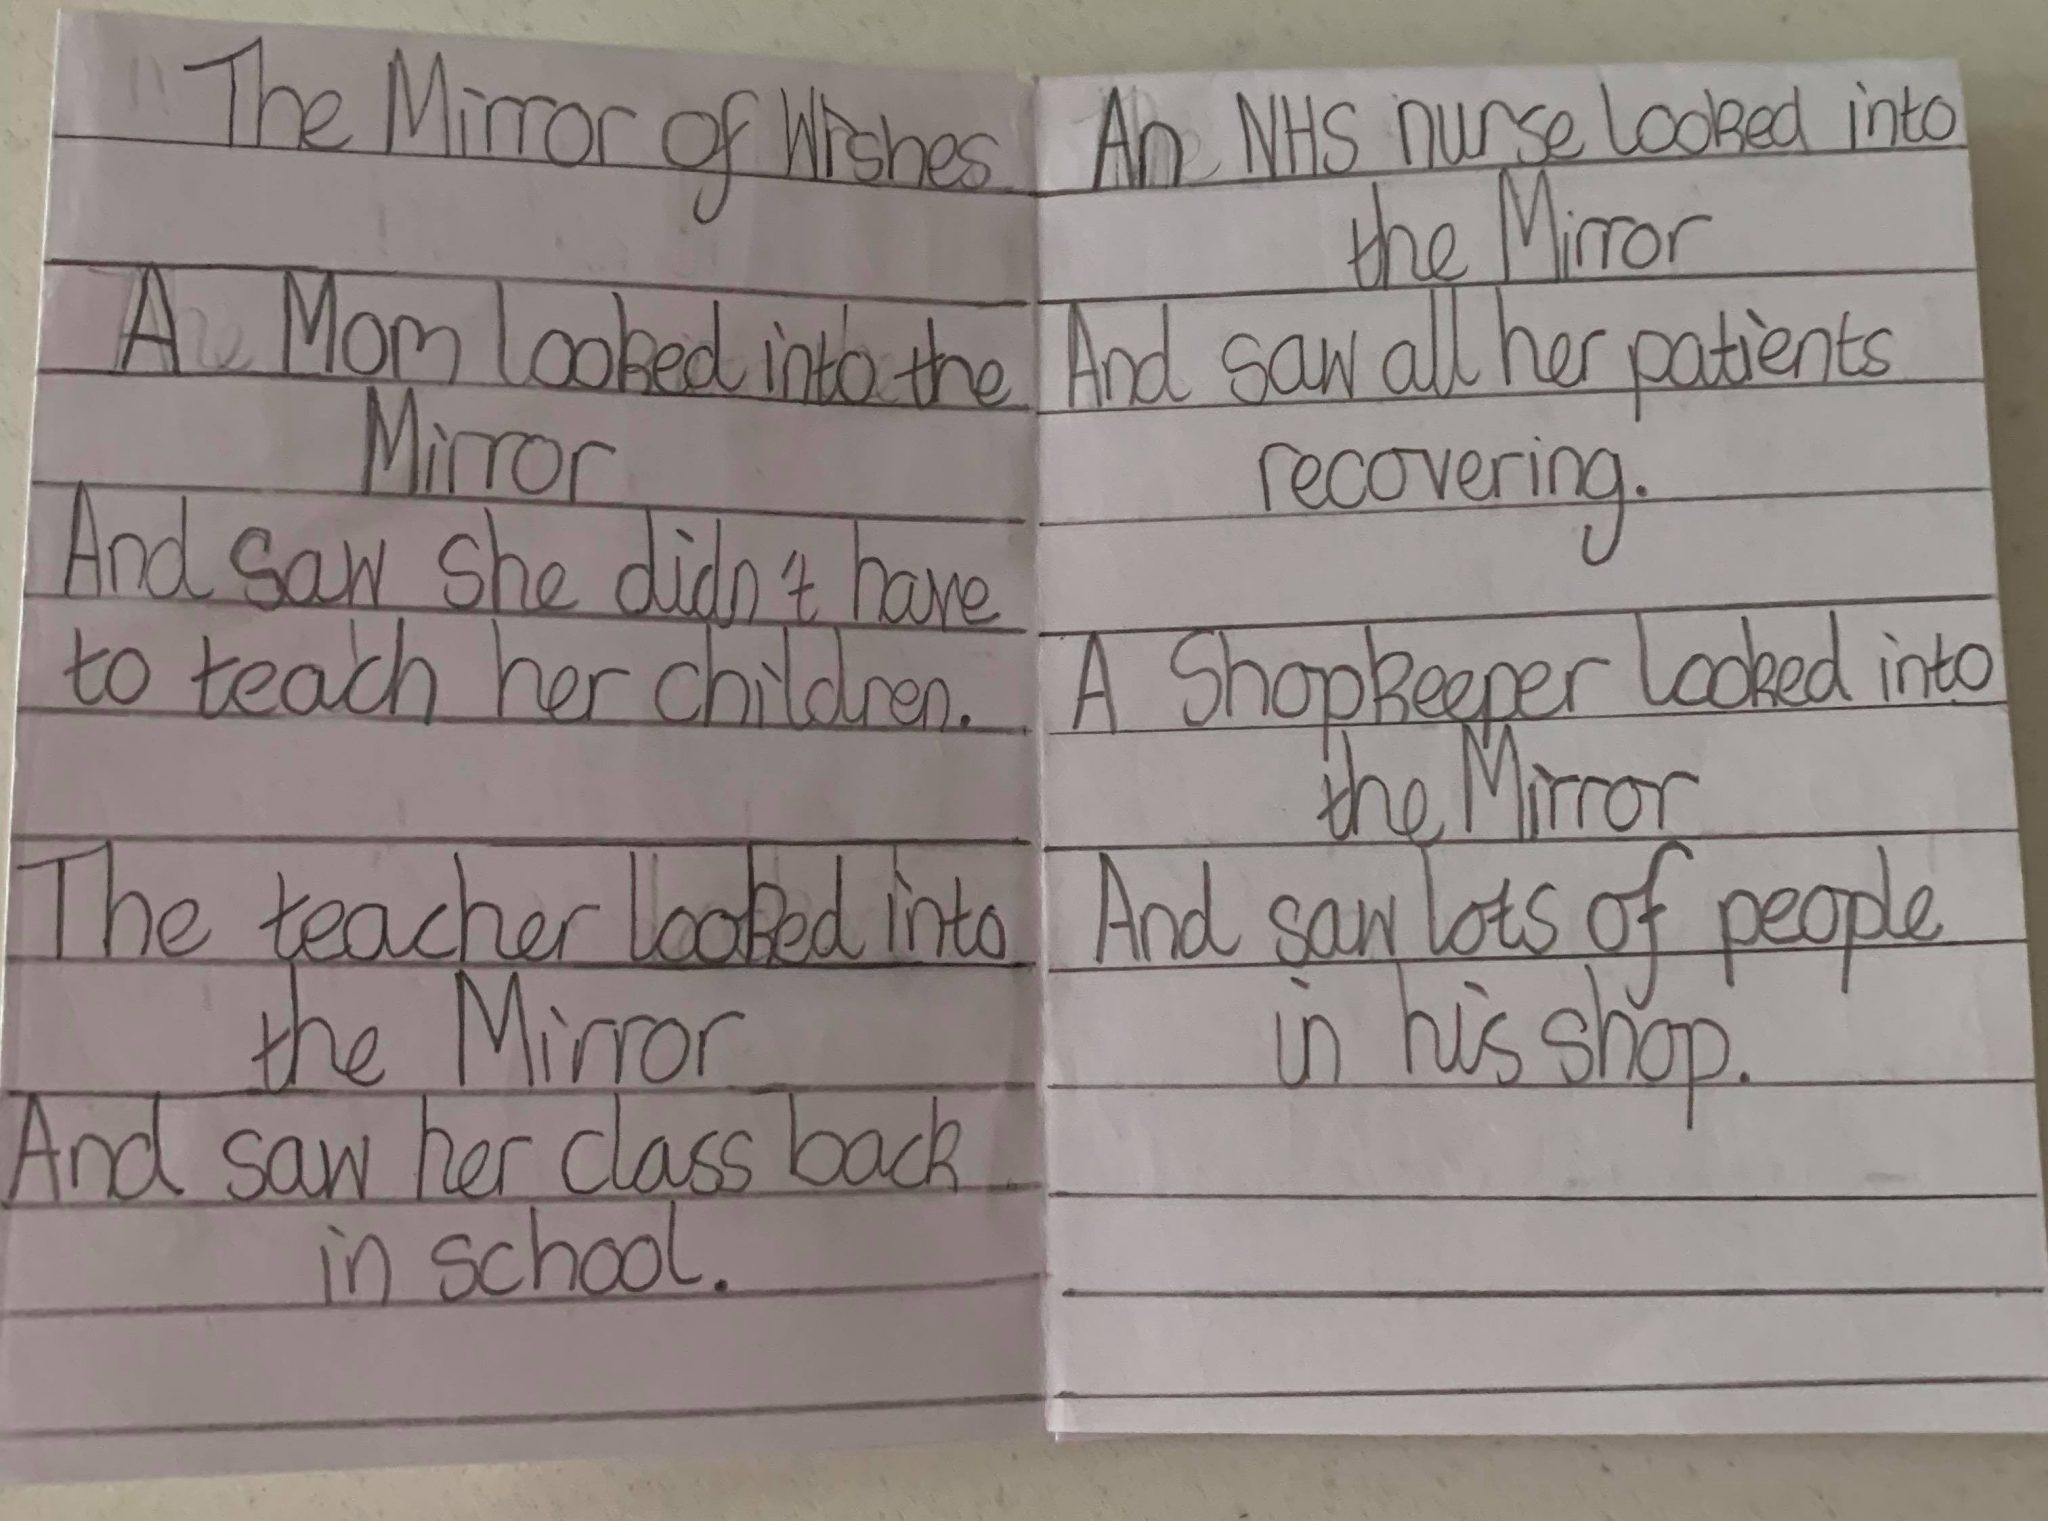 The Mirror of Wishes
A Mom looked into the
Mirror
And saw she didn't have
to teach her children.
The teacher looked into
the Mirror
And saw her class back
in school.
An NHS nurse looked into
the Mirror
And saw all her patients
recovering.
A Shopkeeper looked into
the Mirror
And saw lots of people
in his shop.